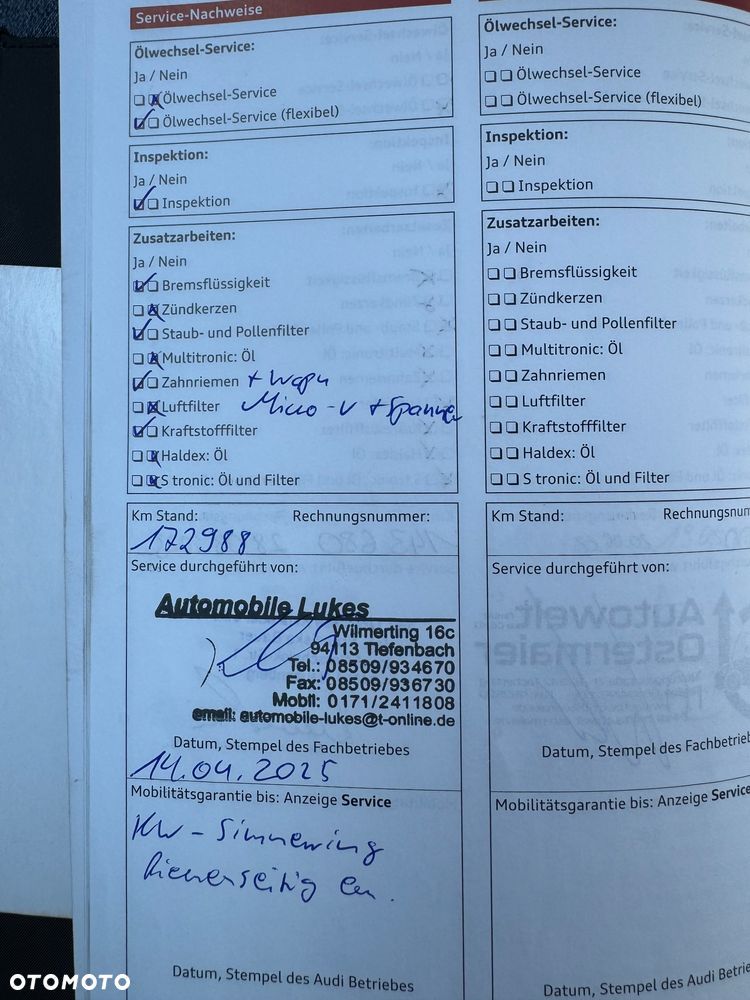 Service-Nachweise
Ölwechsel-Service:
Ja / Nein
Ölwechsel-Service
Ölwechsel-Service (flexibel)
Inspektion:
Ja / Nein
Inspektion
Zusatzarbeiten:
Ja / Nein
Bremsflüssigkeit
Zündkerzen
Staub- und Pollenfilter
Multitronic: Öl
Zahnriemen + Wapu
Luftfilter Micro-V + Spanner
Kraftstofffilter
Haldex: Öl
S tronic: Öl und Filter
Km Stand: Rechnungsnummer:
172988
Service durchgeführt von:
Automobile Lukes
Wilmerting 16c
94113 Tiefenbach
Tel.: 08509/934670
Fax: 08509/936730
Mobil: 0171/2411808
email: automobile-lukes@t-online.de
Datum, Stempel des Fachbetriebes
14.04.2025
Mobilitätsgarantie bis: Anzeige Service
KW-Simmerring
Riemenseitig en.
Datum, Stempel des Audi Betriebes
Ölwechsel-Service:
Ja / Nein
Ölwechsel-Service
Ölwechsel-Service (flexibel)
Inspektion:
Ja / Nein
Inspektion
Zusatzarbeiten:
Ja / Nein
Bremsflüssigkeit
Zündkerzen
Staub- und Pollenfilter
Multitronic: Öl
Zahnriemen
Luftfilter
Kraftstofffilter
Haldex: Öl
S tronic: Öl und Filter
Km Stand: Rechnungsnum
Service durchgeführt von:
Autowelt
Ostermaier
Datum, Stempel des Fachbetrieb
Mobilitätsgarantie bis: Anzeige Service
Datum, Stempel des Audi Betrie
OTOMOTO